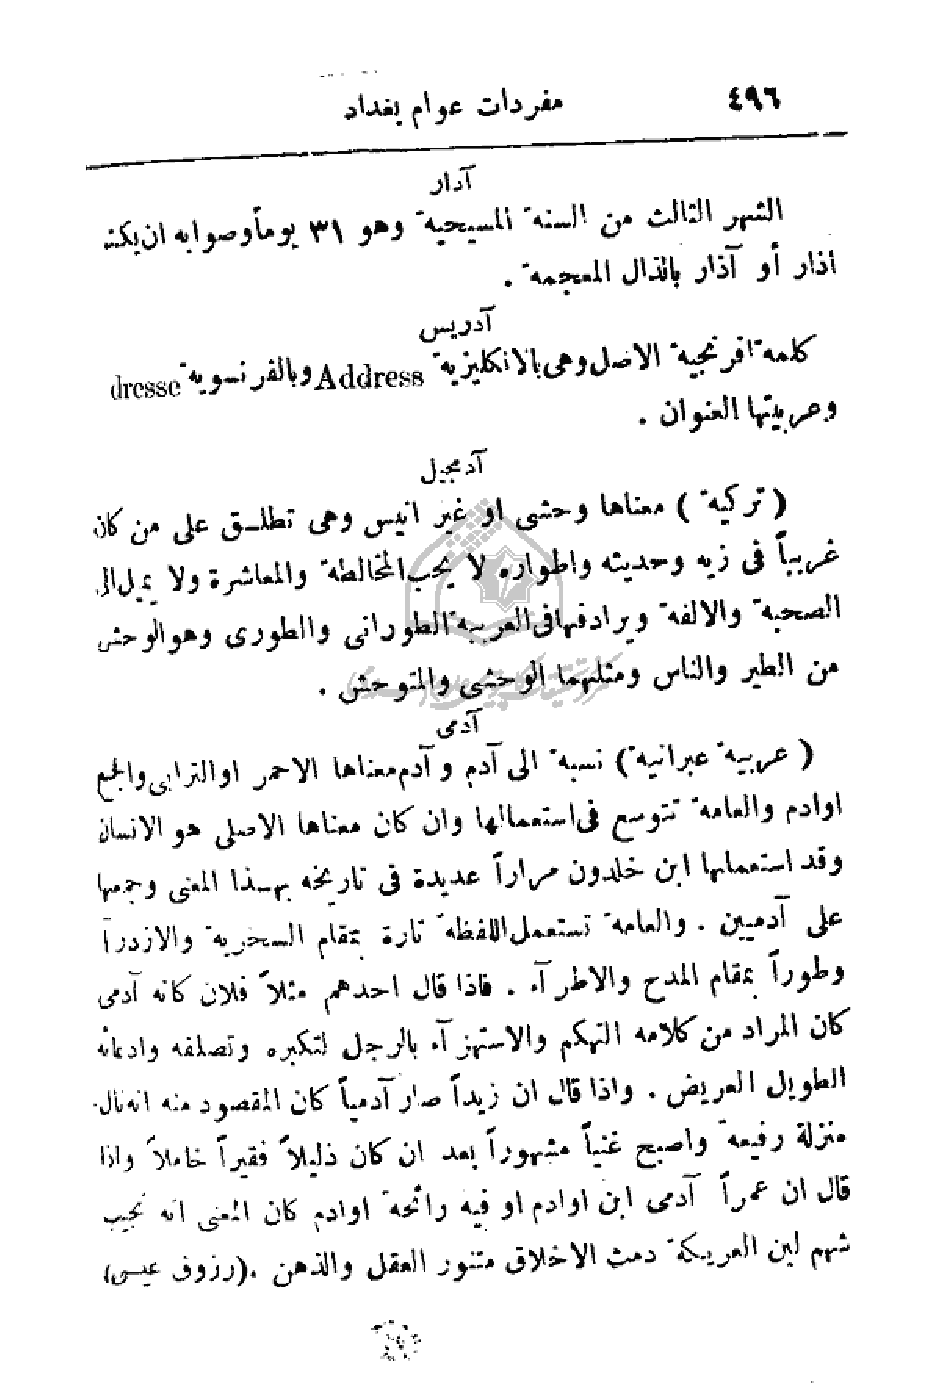 ٤٩٦ مفردات عوام بغداد
آدار
الشهر الثالث من السنة المسيحية وهو ٣١ يوماً وصوابه ان يكتـ
اذار أو آذار بالذال المعجمة .
آدريس
كلمة افرنجية الاصل وهى بالانكليزية Address وبالفرنسوية dresse
وعربيتها العنوان .
آدمجيل
( تركية ) معناها وحشى او غير انيس وهى تطلـق على من كان
غريباً فى زيه وحديثه واطواره لا يحب المخالطة والمعاشرة ولا يميل الى
الصحبة والالفة ويرادفها فى العربية الطورانى والطورى وهو الوحشى
من الطير والناس ومثلهما الوحشى والمتوحش .
آدمى
( عربية عبرانية ) نسبة الى آدم و آدم معناها الاحمر او الترابى والجمع
اوادم والعامة تتوسع فى استعمالها وان كان معناها الاصلى هو الانسان
وقد استعملها ابن خلدون مراراً عديدة فى تاريخه بهـذا المعنى وجمعها
على آدميين . والعامة تستعمل اللفظة تارة بمقام السخرية والازدرآ
وطوراً بمقام المدح والاطرآء . فاذا قال احدهم مثلاً فلان كانه آدمى
كان المراد من كلامه التهكم والاستهزآء بالرجل لتكبره وتصلفه وادعائه
الطويل العريض . واذا قال ان زيداً صار آدمياً كان المقصود منه انه نال
منزلة رفيعة واصبح غنياً مشهوراً بعد ان كان ذليلاً فقيراً خاملاً واذا
قال ان عمراً آدمى ابن اوادم او فيه رائحة اوادم كان المعنى انه نجيب
شهم لين العريكة دمث الاخلاق متنور العقل والذهن .(رزوق عيسى)